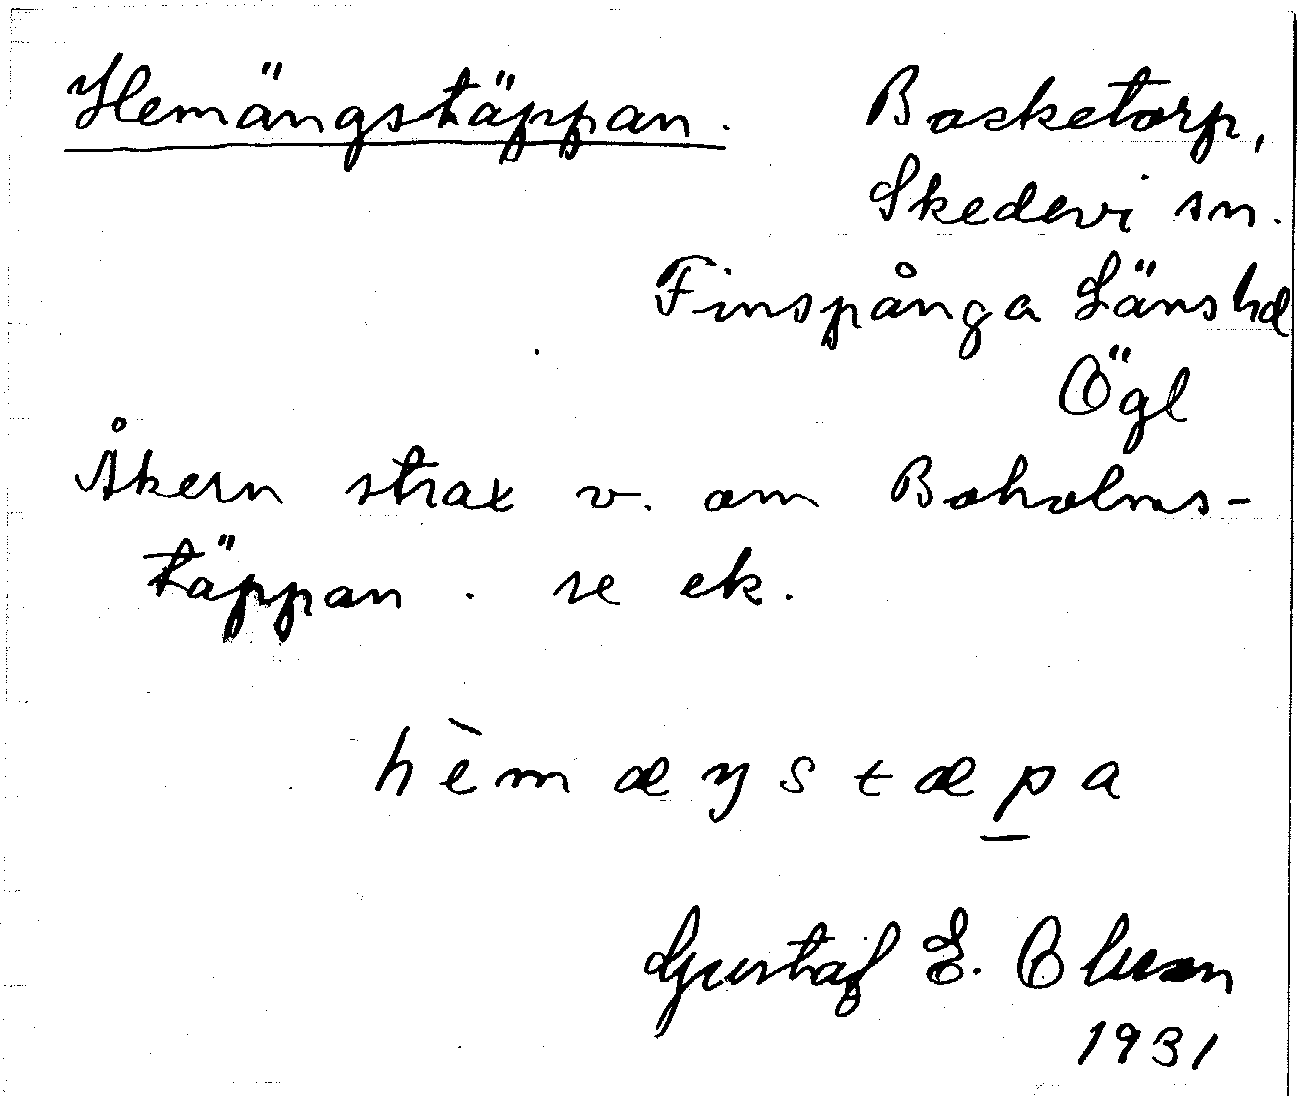 Hemängstäppan. Bosketorp,
Skedevi sn.
Finspånga Länshd
Ögl
Åkern strax v. om Boholms-
täppan. se ek.
hèmæŋstæpa
Gustaf E. Olsson
1931